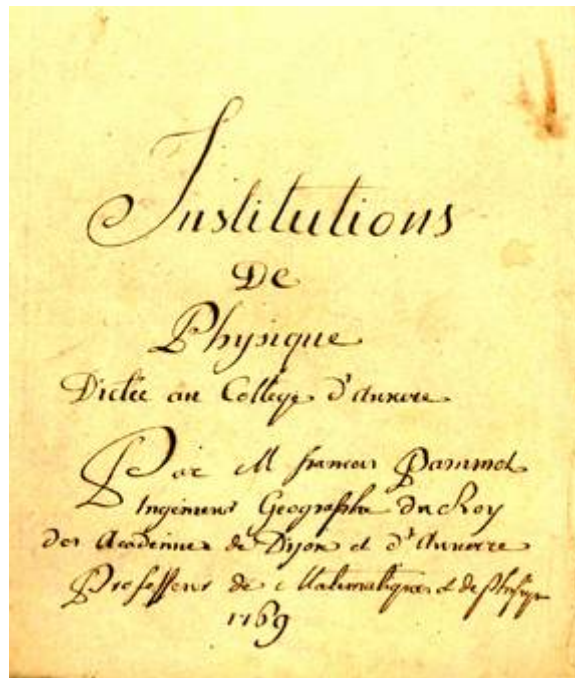 Institutions
De
Physique
Dictée au College d'Auxerre
Par M francois Pammot
Ingénieur Geographe du Roy
des Academies de Dijon et d'Auxerre
Professeur de Matematiques et de physique
1769